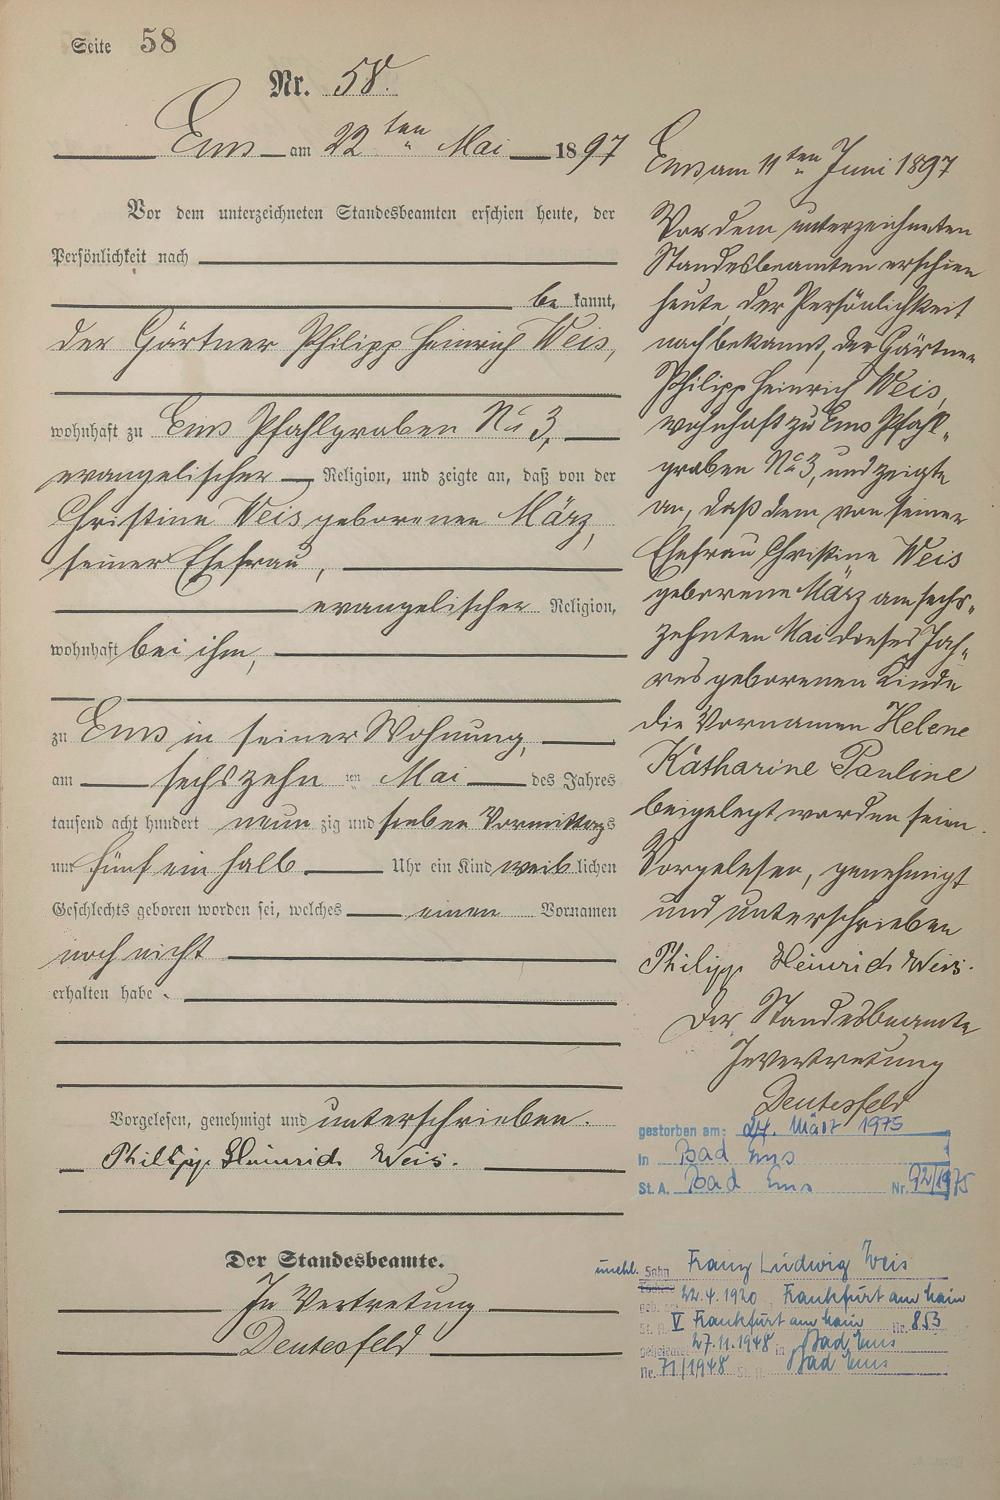 Seite 58
Nr. 58.
Ems am 22ten Mai 1897
Vor dem unterzeichneten Standesbeamten erschien heute, der
Persönlichkeit nach
be kannt,
der Gärtner Philipp Heinrich Weis,
wohnhaft zu Ems Pfahlgraben No 3,
evangelischer Religion, und zeigte an, daß von der
Christine Weis geborenen März,
seiner Ehefrau,
evangelischer Religion,
wohnhaft bei ihm,
zu Ems in seiner Wohnung,
am sechszehn ten Mai des Jahres
tausend acht hundert neun zig und sieben Vormittags
um fünf ein halb Uhr ein Kind weib lichen
Geschlechts geboren worden sei, welches einen Vornamen
noch nicht
erhalten habe.
Vorgelesen, genehmigt und unterschrieben.
Philipp Heinrich Weis.
Der Standesbeamte.
In Vertretung
Deutesfeld
Ems am 11ten Juni 1897
Vor dem unterzeichneten
Standesbeamten erschien
heute, der Persönlichkeit
nach bekannt, der Gärtner
Philipp Heinrich Weis,
wohnhaft zu Ems Pfahl-
graben No 3, und zeigte
an, daß dem von seiner
Ehefrau Christine Weis
geborene März am sechs-
zehnten Mai dieses Jah-
res geborenen Kinde
die Vornamen Helene
Katharine Pauline
beigelegt worden seien.
Vorgelesen, genehmigt
und unterschrieben
Philipp Heinrich Weis.
Der Standesbeamte
In Vertretung
Deutesfeld
gestorben am: 24. März 1975
in Bad Ems
St. A. Bad Ems Nr. 92/1975
unehl. Sohn Franz Ludwig Weis
22.4.1920, Frankfurt am Main
St. A. V Frankfurt am Main Nr. 853
geheiratet 27.11.1948 in Bad Ems
Nr. 71/1948 St. A. Bad Ems